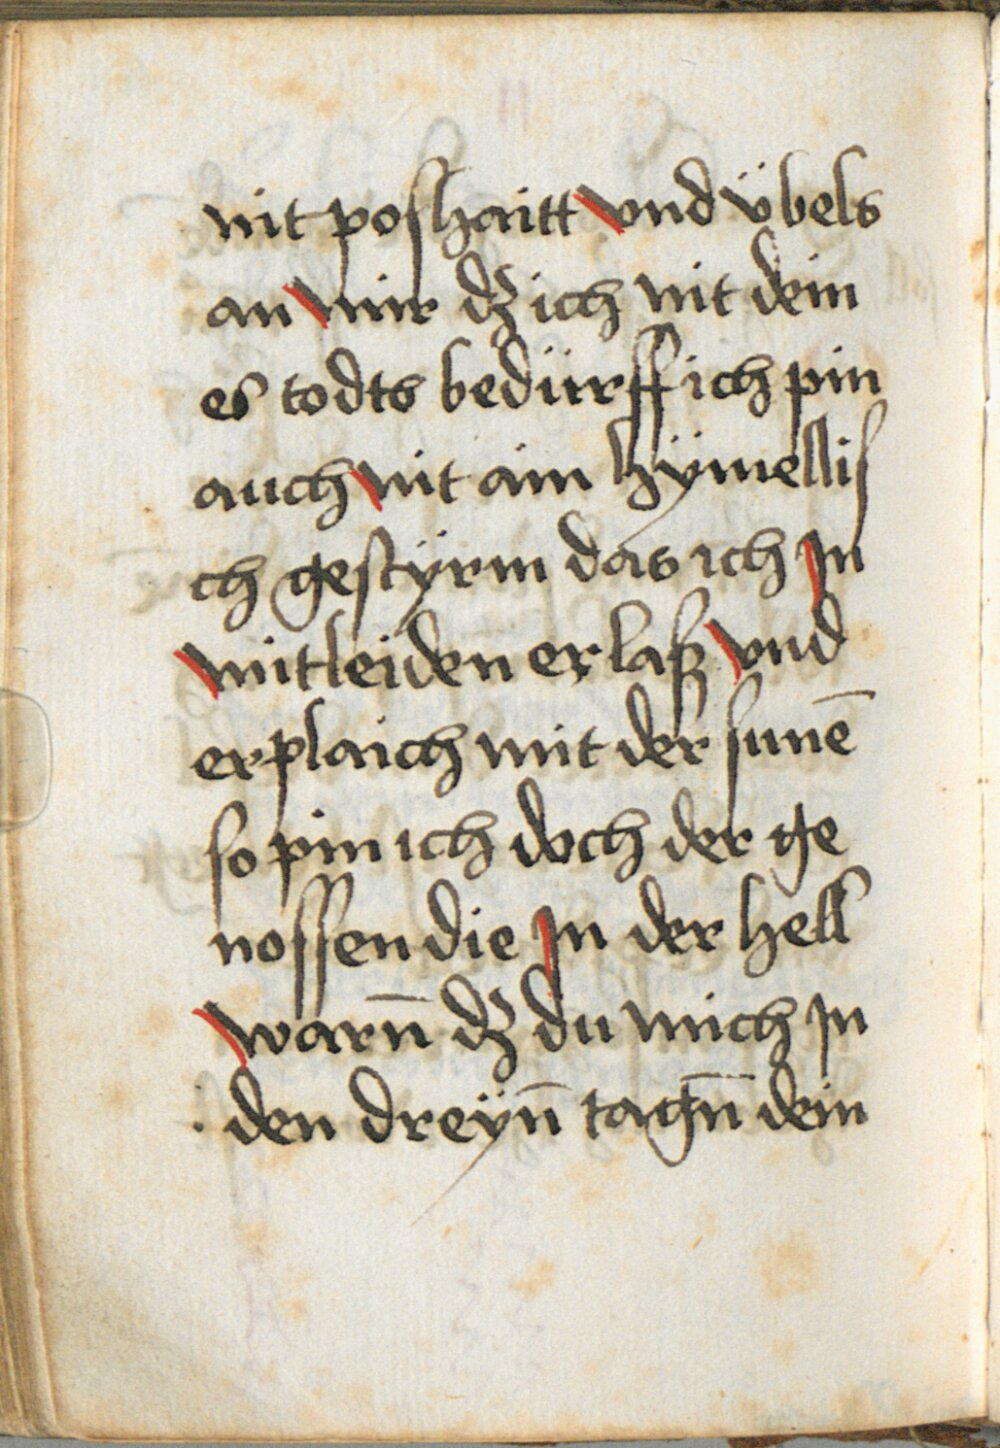 nit poshaitt vnd übels
an mir dz ich nit dein
es todts bedürff ich pin
auch nit ain hÿmellis
ch gestÿrm das ich In
mitleiden erlaß vnd
erplaich mit der sunē
so pin ich doch der ge
nossen die In der hell
warn̄ dz du mich In
den dreÿn̄ tagn̄ dein